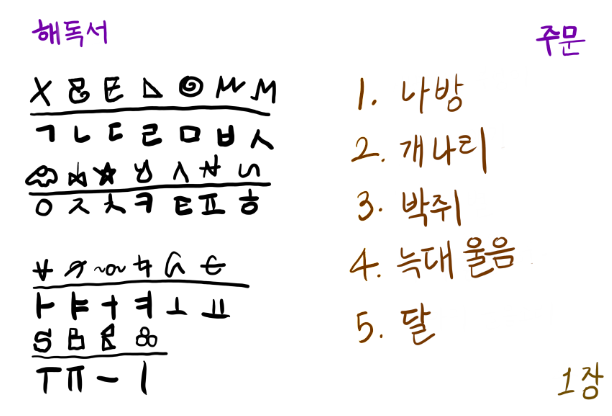 해독서
ㄱ ㄴ ㄷ ㄹ ㅁ ㅂ ㅅ
ㅇ ㅈ ㅊ ㅋ ㅌ ㅍ ㅎ
ㅏ ㅑ ㅓ ㅕ ㅗ ㅛ
ㅜ ㅠ ㅡ ㅣ
주문
1. 나방
2. 개나리
3. 박쥐
4. 늑대 울음
5. 달
1장